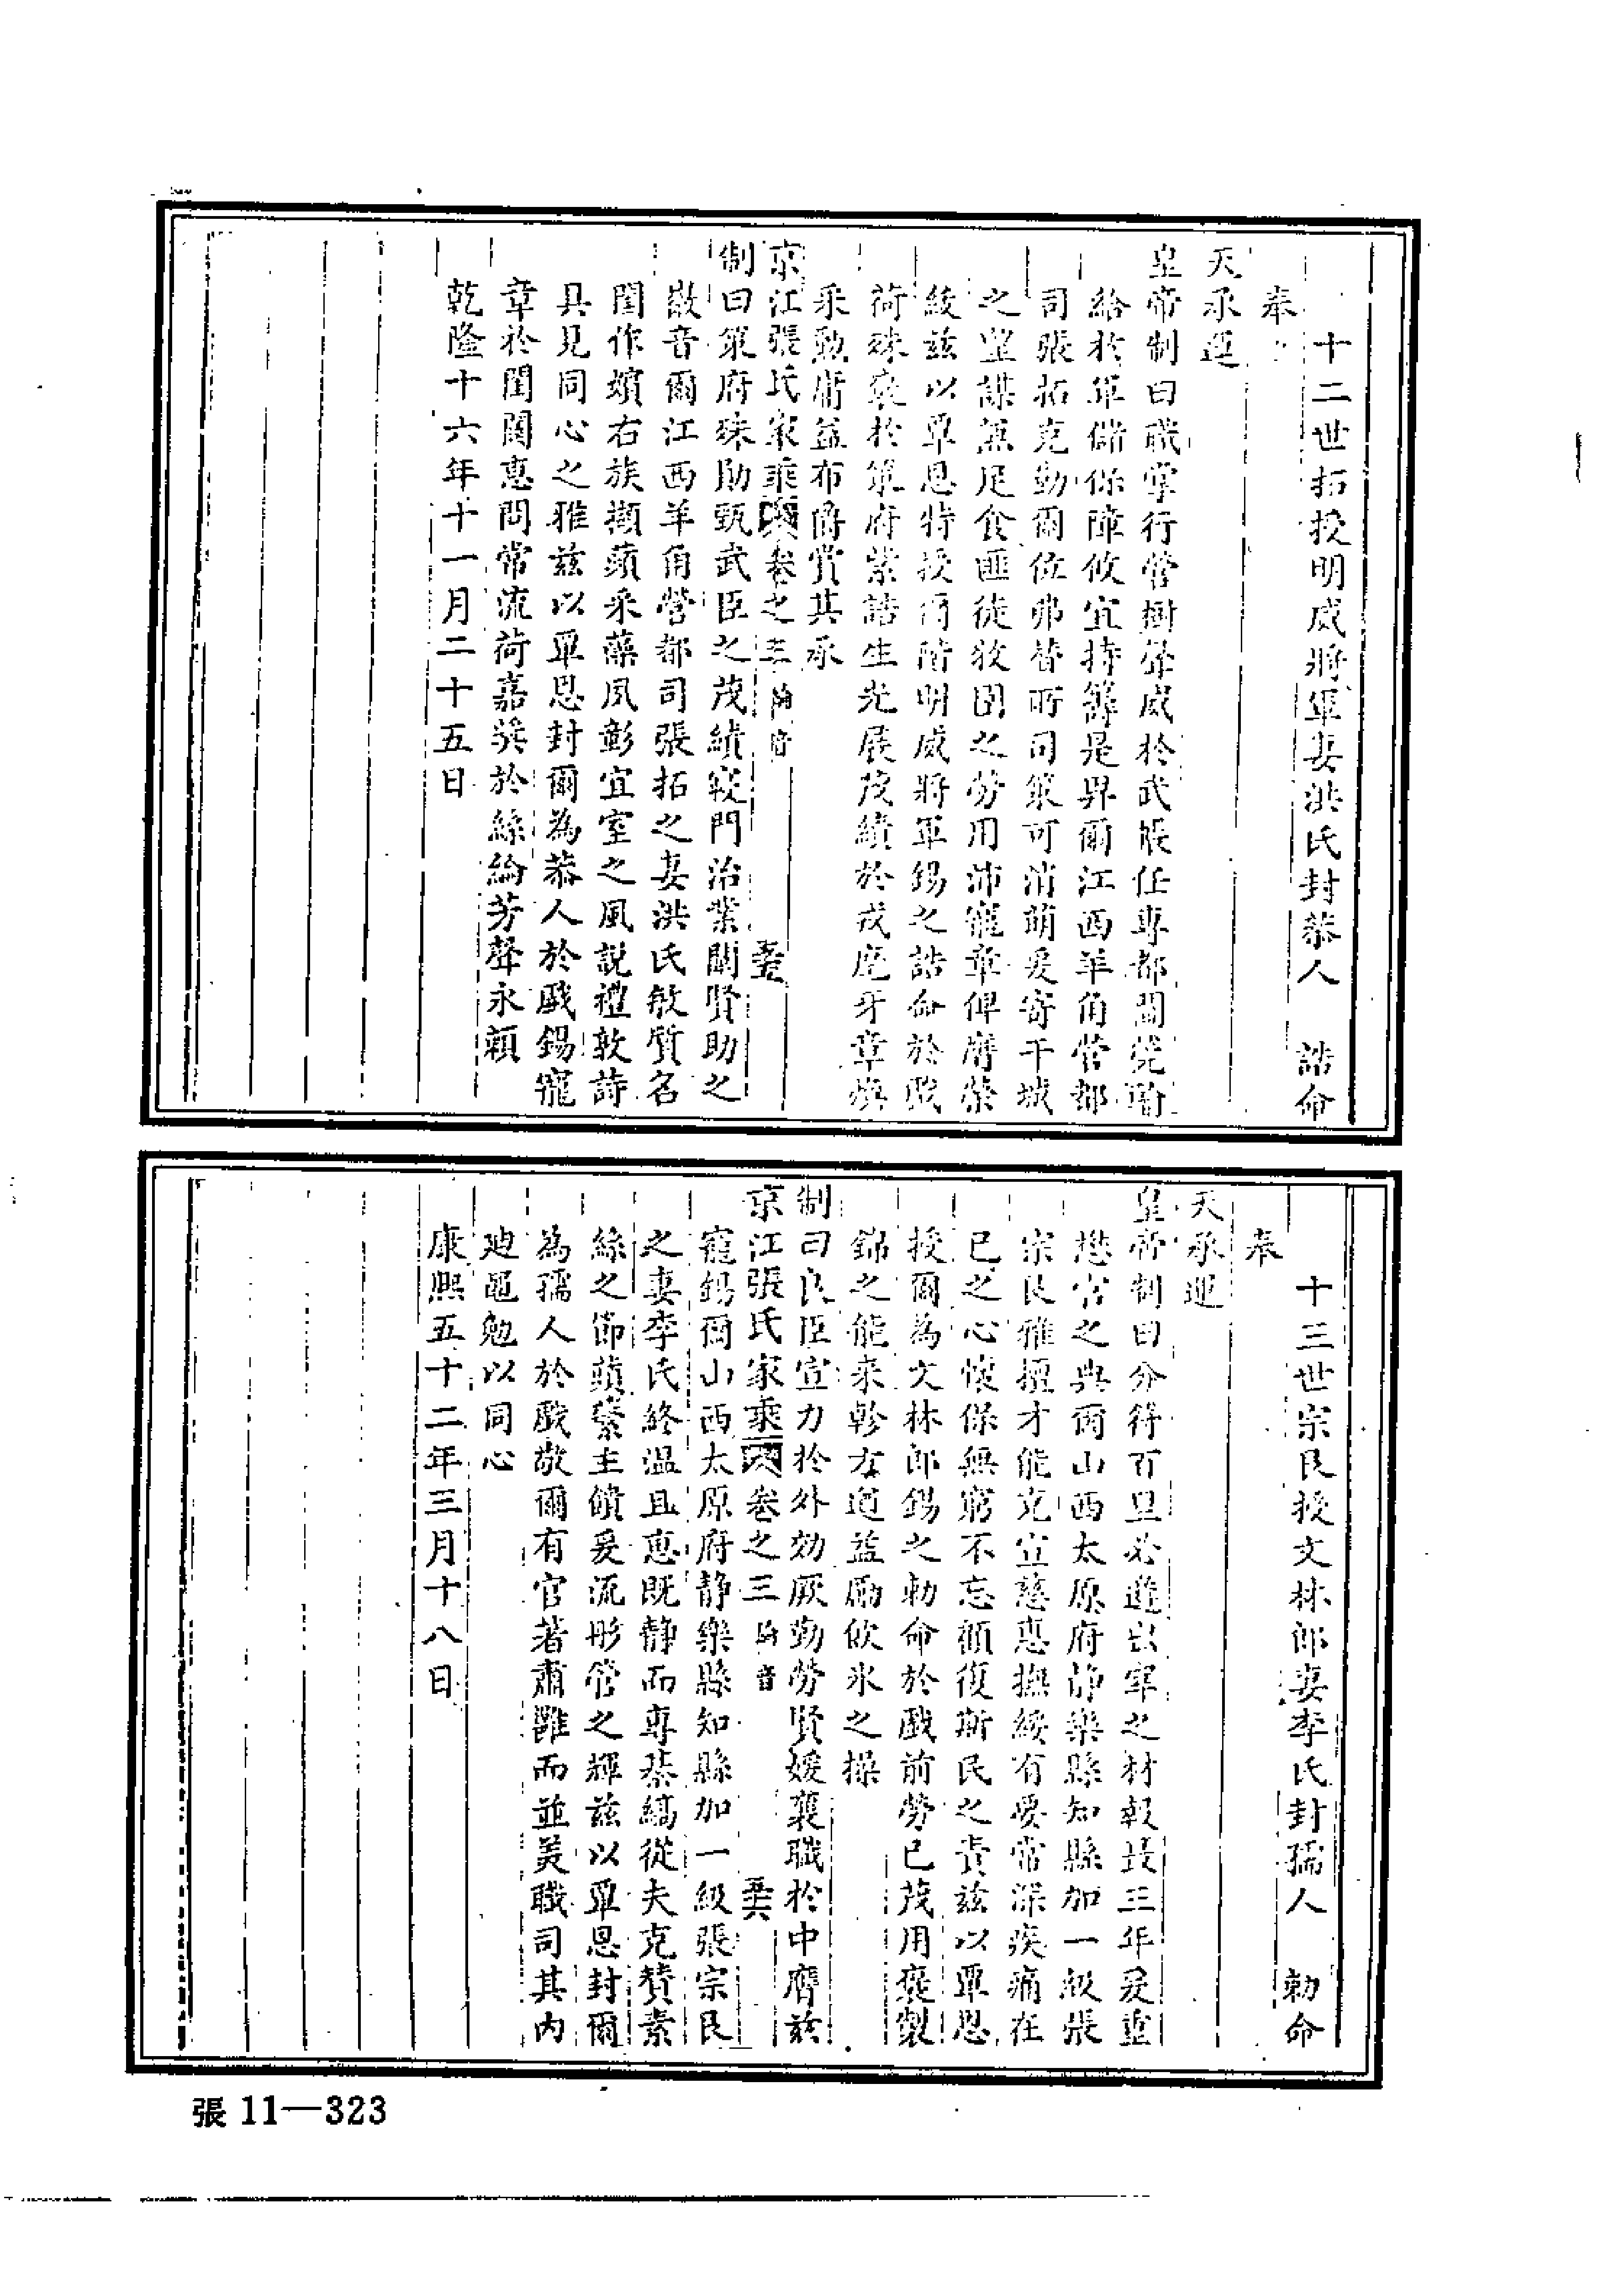 十二世拓授明威將軍妻洪氏封恭人　誥命
奉
天承運
皇帝制曰職掌行營樹聲威於武帳任專都閫凭
給於軍儲保障攸宜持籌是畀爾江西羊角營都
司張拓克勤爾位弗替所司策可消萌爰寄干城
之望謀無足食匪徒牧圉之勞用沛寵章俾膺榮
綬茲以覃恩特授爾階明威將軍錫之誥命於戲
荷殊褒於策府紫誥生光展茂績於戎麾牙章煥
采勳庸益布爵賞其承
京江張氏家乘 卷之三 綸音 五五
制曰策府殊勛甄武臣之茂績寢門治業關賢助之
徽音爾江西羊角營都司張拓之妻洪氏敏質名
閨作嬪右族擷蘋采藻夙彰宜室之風說禮敦詩
具見同心之雅茲以覃恩封爾為恭人於戲錫寵
章於閨闥惠問常流荷嘉奬於絲綸芳聲永穎
乾隆十六年十一月二十五日
十三世宗良授文林郎妻李氏封孺人　勅命
奉
天承運
皇帝制曰分符百里必遴出宰之材報最三年爰重
懋官之典爾山西太原府靜樂縣知縣加一級張
宗良雅擅才能克宣慈惠撫綏有要常深疾痛在
已之心懷保無窮不忘顧復斯民之責茲以覃恩
授爾為文林郎錫之勅命於戲前勞已茂用褒製
錦之能来軫方遒益勵飲氷之操
制曰良臣宣力於外効厥勤勞賢媛襄職於中膺茲
京江張氏家乘 卷之三 綸音 五六
寵錫爾山西太原府靜樂縣知縣加一級張宗良
之妻李氏終温且惠既静而專綦縞從夫克賛素
絲之節蘋蘩主饋爰流彤管之輝茲以覃恩封爾
為孺人於戲敬爾有官著肅雝而並美職司其内
迪黽勉以同心
康熙五十二年三月十八日
張 11—323